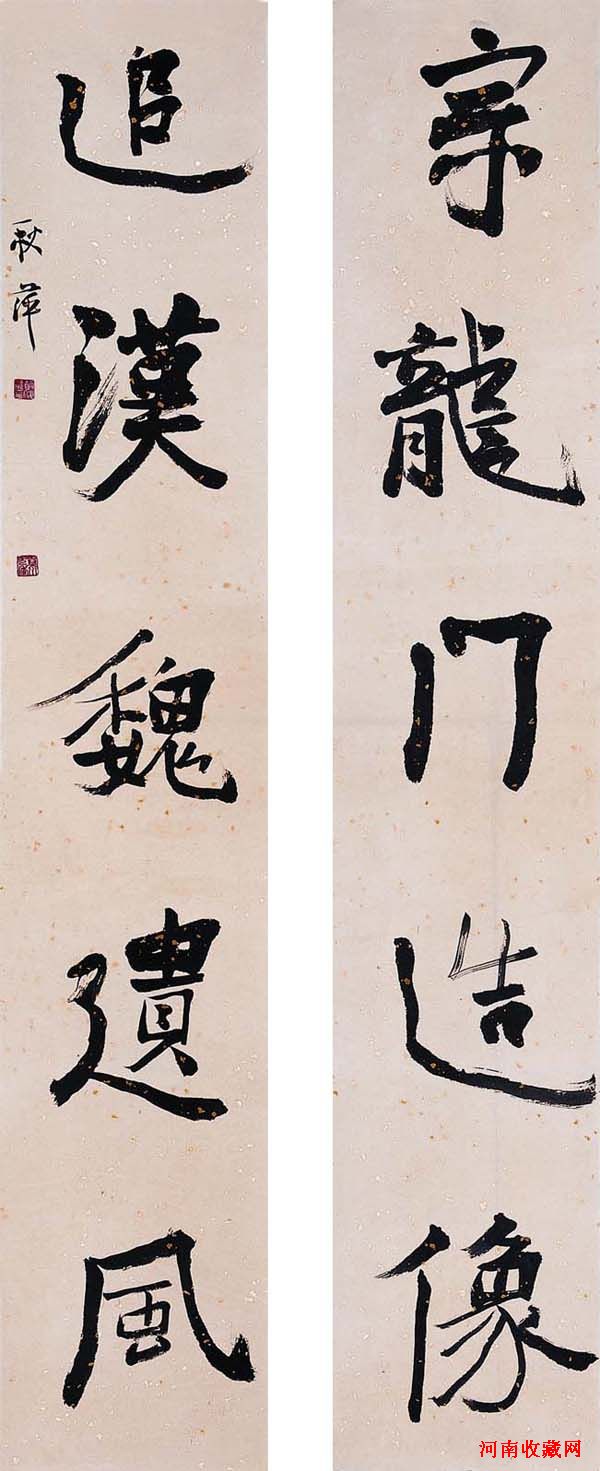 宗龍门造像
追漢魏遺風
秋萍
河南收藏网